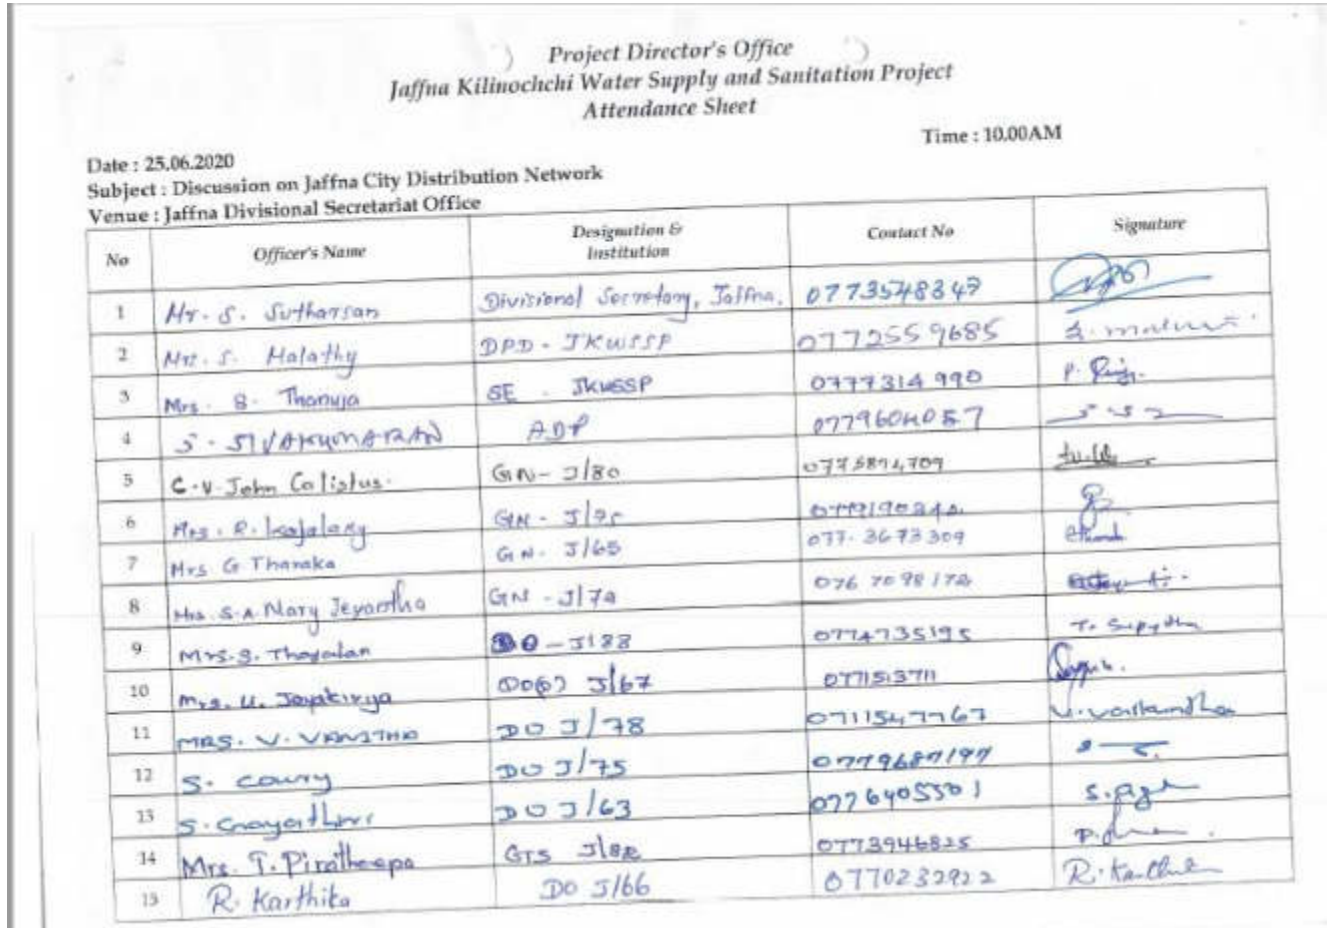 Project Director's Office
Jaffna Kilinochchi Water Supply and Sanitation Project
Attendance Sheet
Time : 10.00AM
Date : 25.06.2020
Subject : Discussion on Jaffna City Distribution Network
Venue : Jaffna Divisional Secretariat Office
No Officer's Name Designation & Institution Contact No Signature
1 Mr. S. Sutharsan Divisional Secretary, Jaffna.
2 Mrs. S. Malathy DPD - JKWSSP 0772559685
3 Mrs. S. Thanuja SE - JKWSSP 0777314990
4 S. SIVAKUMARAN 0779604057
5 C.V. John Calistus. GN - J/80
6 Mrs. R. GN -
7 Mrs G Tharaka GN - J/65 077-3673309
8 Mrs. S.A. Mary GN -
9 Mrs. S. Thayalan - J/88 0774735195
10 Mrs. U. Jeyakirija J/67 0771513711
11 MRS. V. VANITHA DO J/78
12 S. Gowry DO J/75 0779687197
13 S. Gayathiri DO J/63 0776405501
14 Mrs. T. Piratheepa 0773946825
15 R. Karthika DO J/66 0770232922